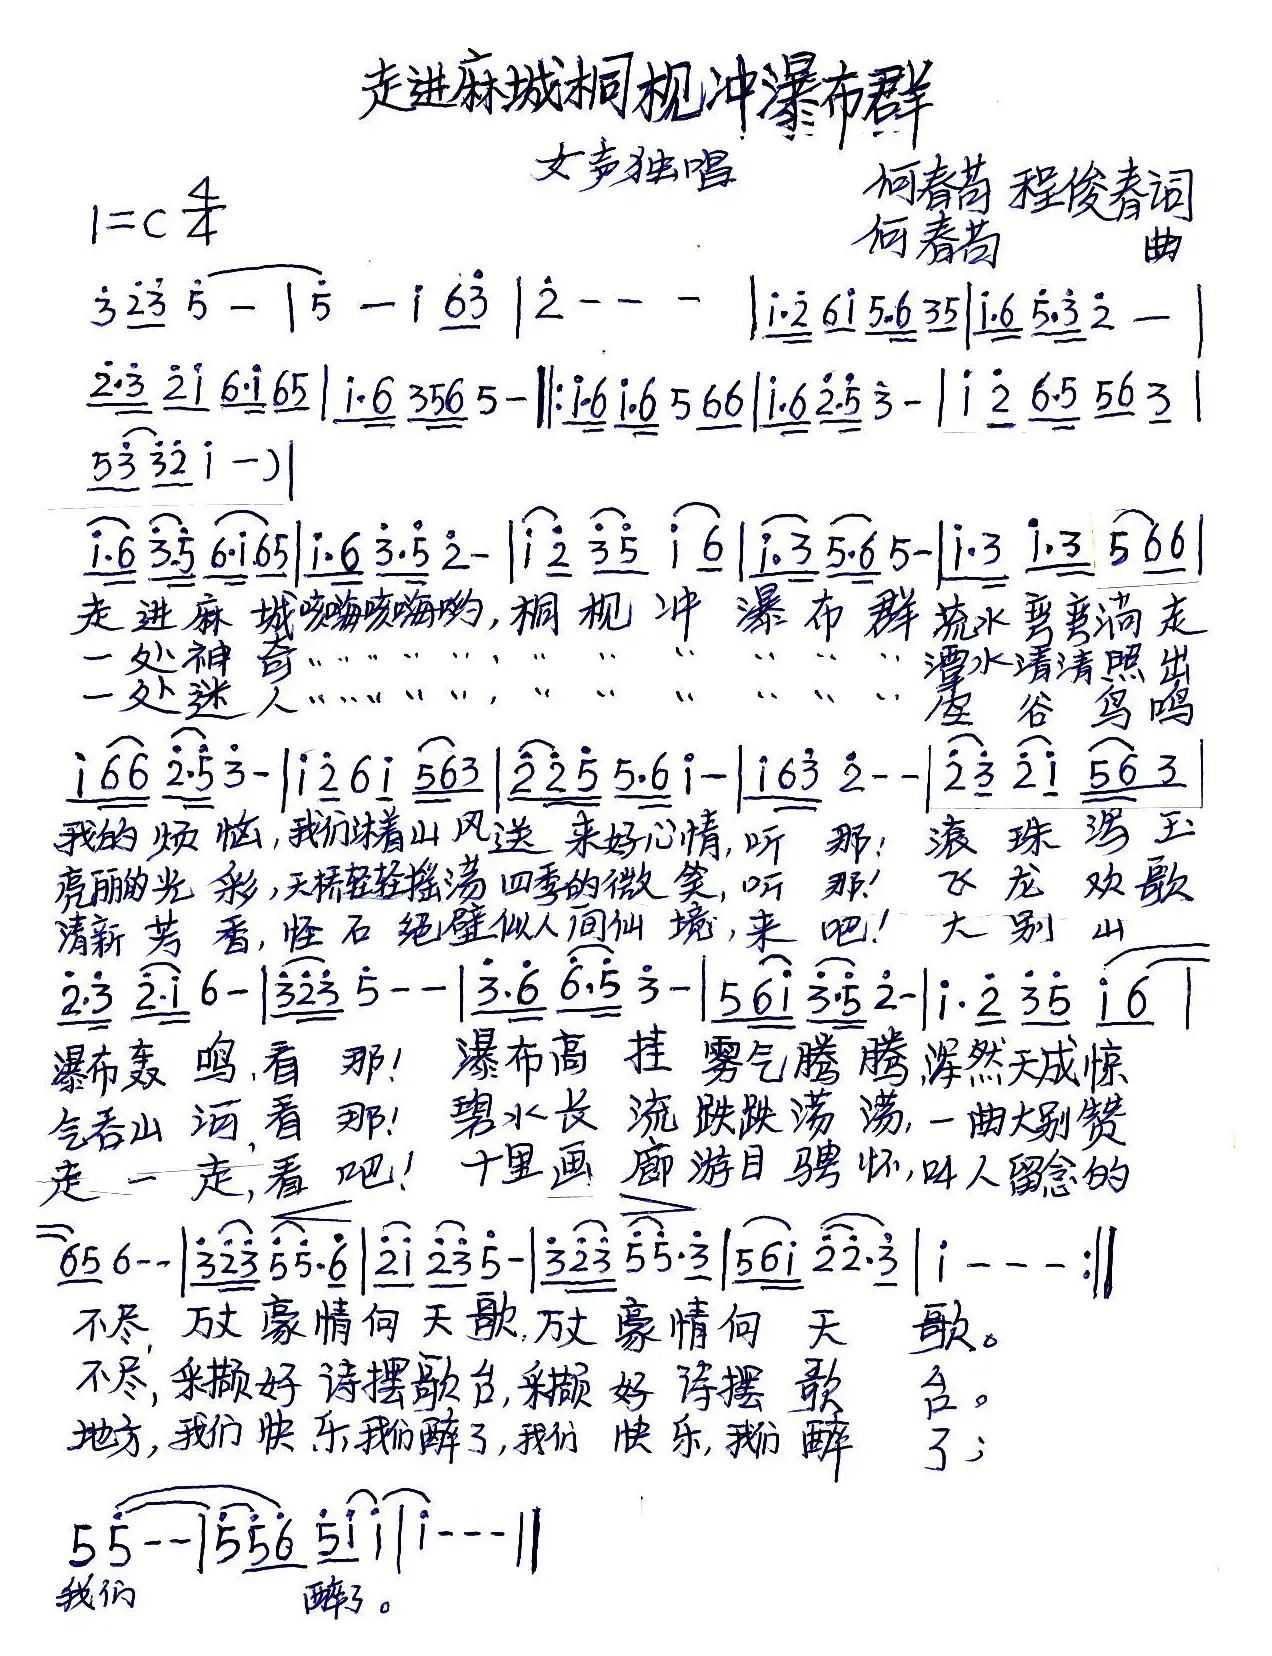 走进麻城桐枧冲瀑布群
女声独唱
何春苟 程俊春词
1=C 4/4
何春苟 曲
3̇ 2̇3̇ 5̇ - | 5̇ - 1̇ 63̇ | 2̇ - - - | 1̇·2̇ 61̇ 5·6 35 | 1̇·6 5̇·3̇ 2̇ - |
2̇·3̇ 2̇1̇ 6·1̇ 65 | 1̇·6 356 5 - ‖: 1̇·6 1̇·6 5 66 | 1̇·6 2̇·5̇ 3̇ - | 1̇ 2̇ 6·5 56 3 |
53̇ 3̇2̇ 1̇ - ) |
1̇·6 3̇·5̇ 6·1̇ 65 | 1̇·6 3̇·5̇ 2̇ - | 1̇ 2̇ 3̇5̇ 1̇ 6 | 1̇·3 5·6 5 - | 1̇·3 1̇·3 5 66 |
走进麻城咳嗨咳嗨哟,桐枧冲瀑布群流水弯弯淌走
一处神奇〃〃〃〃〃,〃〃〃〃〃〃潭水清清照出
一处迷人〃〃〃〃〃,〃〃〃〃〃〃空谷鸟鸣
1̇ 66 2̇·5̇ 3̇ - | 1̇ 2̇ 6 1̇ 563 | 2̇ 2̇5̇ 5·6 1̇ - | 1̇63̇ 2̇ - - | 2̇3̇ 2̇1̇ 56 3 |
我的烦恼,我们沐着山风送来好心情,听那!滚珠泻玉
亮丽的光彩,天桥轻轻摇荡四季的微笑,听那!飞龙欢歌
清新芳香,怪石绝壁似人间仙境,来吧!大别山
2̇·3̇ 2̇·1̇ 6 - | 3̇2̇3̇ 5̇ - - | 3̇·6̇ 6̇·5̇ 3̇ - | 561̇ 3̇·5̇ 2̇ - | 1̇·2̇ 3̇5̇ 1̇ 6 |
瀑布轰鸣,看那!瀑布高挂雾气腾腾,浑然天成惊
气吞山河,看那!碧水长流跌跌荡荡,一曲大别赞
走一走,看吧!十里画廊游目骋怀,叫人留念的
65 6 - - | 3̇2̇3̇ 5̇5̇·6̇ | 2̇1̇ 2̇3̇ 5̇ - | 3̇2̇3̇ 5̇5̇·3̇ | 561̇ 2̇2̇·3̇ | 1̇ - - - :‖
不尽,万丈豪情向天歌,万丈豪情向天歌。
不尽,采撷好诗摆歌台,采撷好诗摆歌台。
地方,我们快乐我们醉了,我们快乐,我们醉了;
5 5̇ - - | 5̇ 5̇6̇ 5̇1̇ 1̇ | 1̇ - - - ‖
我们醉了。